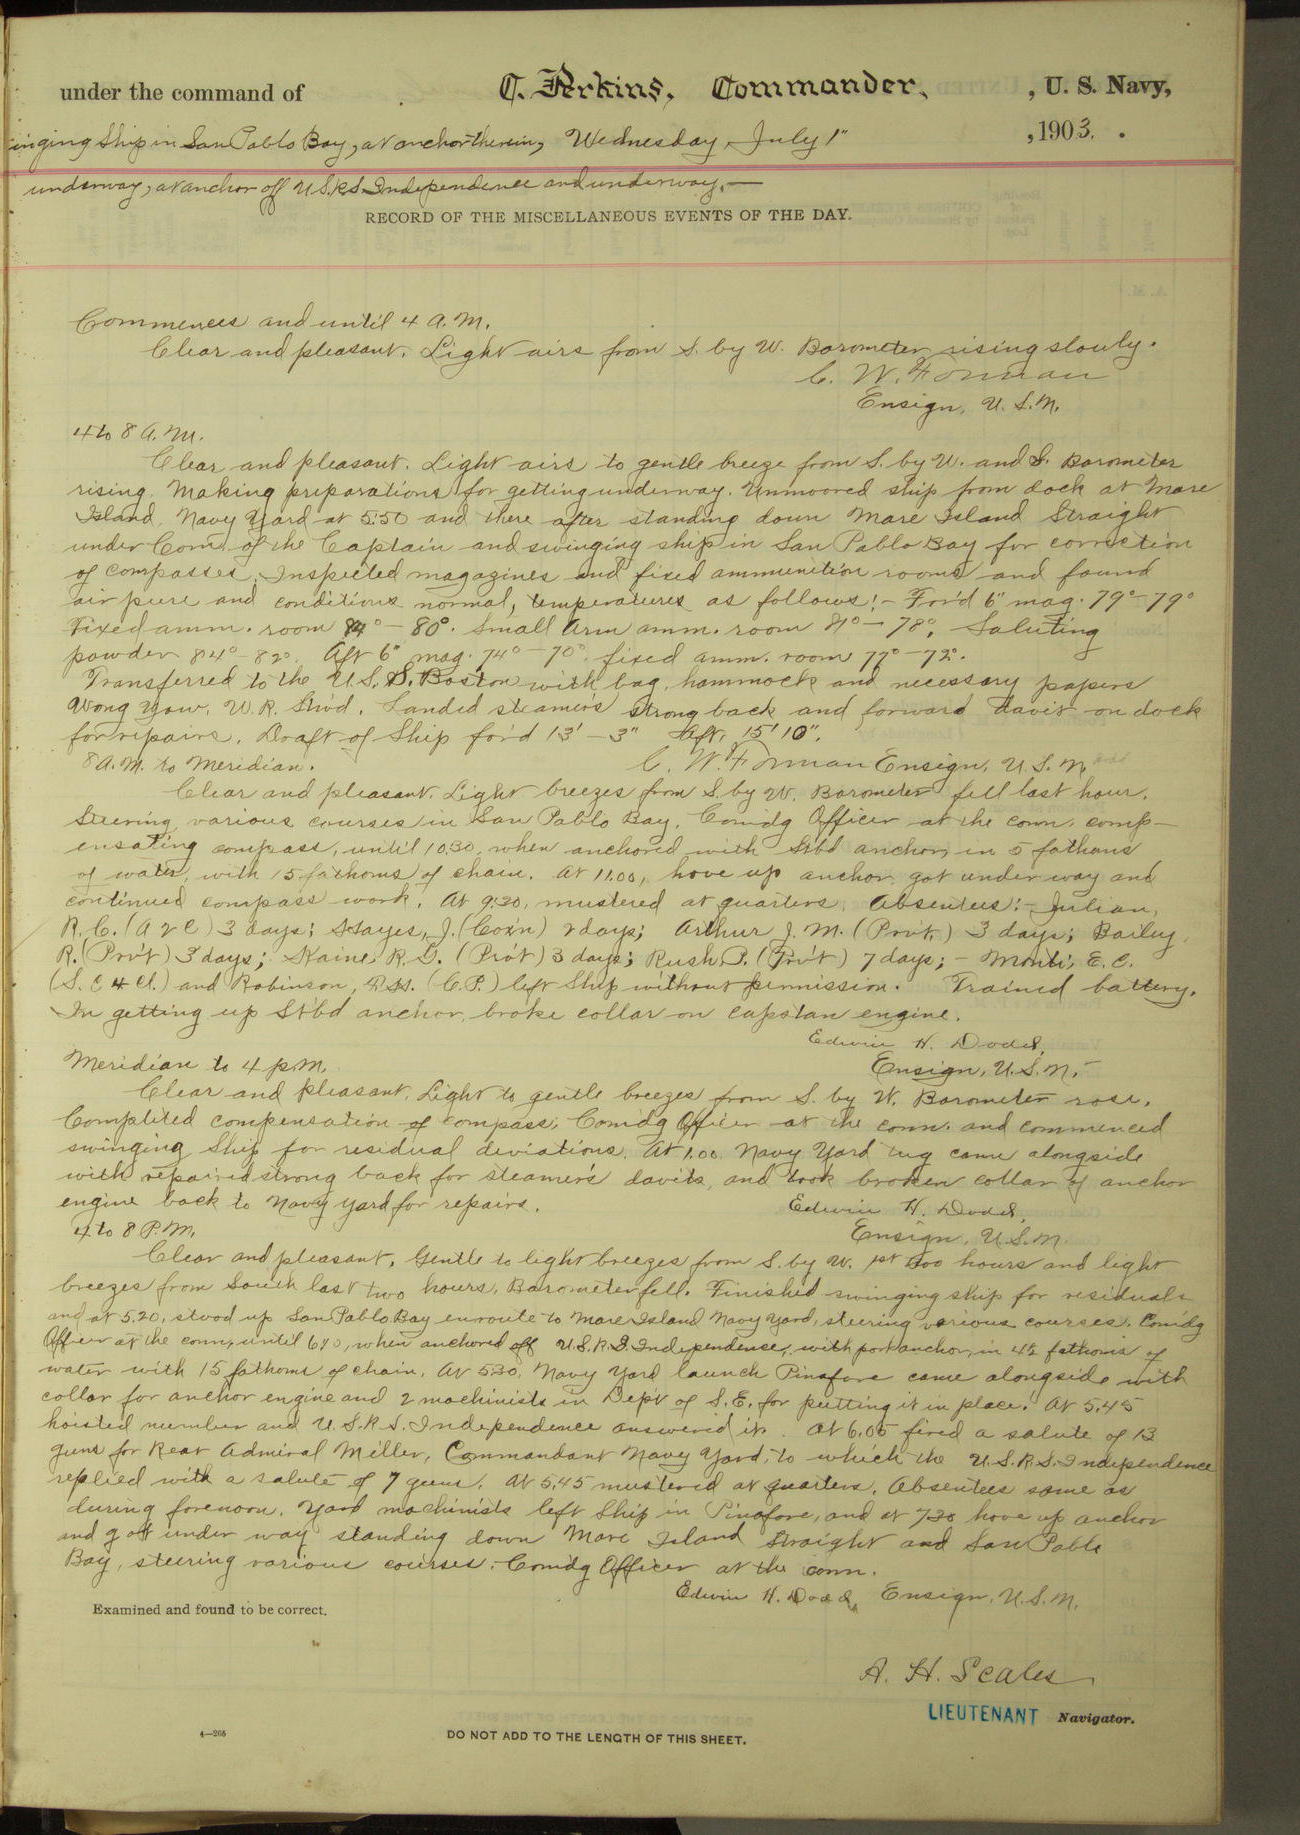 under the command of C. Perkins, Commander, , U. S. Navy,
inging Ship in San Pablo Bay, at anchor therein, Wednesday, July 1" , 1903.
underway, at anchor off U.S.R.S. Independence and underway. —
RECORD OF THE MISCELLANEOUS EVENTS OF THE DAY.
Commences and until 4 A.M.
Clear and pleasant. Light airs from S. by W. Barometer rising slowly.
C. W. Forman
Ensign, U.S.N.
4 to 8 A.M.
Clear and pleasant. Light airs to gentle breeze from S. by W. and S. Barometer
rising. Making preparations for getting underway. Unmoored ship from dock at Mare
Island, Navy Yard at 5:50 and there after standing down Mare Island Straight
under Com'd of the Captain and swinging ship in San Pablo Bay for correction
of compasses. Inspected magazines and fixed ammunition rooms and found
air pure and conditions normal, temperatures as follows:- For'd 6" mag. 79°-79°
Fixed amm. room 84°-80°. Small Arm amm. room 81°-78°, Saluting
powder 84°-82°. Aft 6" mag. 74°-70°. fixed amm. room 77°-72°.
Transferred to the U.S.S. Boston with bag, hammock and necessary papers
Wong Yow, W.R. Stw'd. Landed steamers strong back and forward davit on dock
for repairs. Draft of Ship for'd 13'-3" Aft, 15' 10".
8 A.M. to Meridian. C. W. Forman Ensign, U.S.N.
Clear and pleasant. Light breezes from S. by W. Barometer fell last hour.
Steering various courses in San Pablo Bay. Com'dg Officer at the conn, comp-
ensating compass, until 10.30, when anchored with Stbd anchor, in 5 fathoms
of water, with 15 fathoms of chain. At 11.00, hove up anchor got under way and
continued compass work. At 9.30, mustered at quarters. Absentees:- Julian,
R.C. (A 2 C) 3 days; Hayes, J. (Cox'n) 2 days; Arthur J. M. (Priv't.) 3 days; Bailey,
R. (Priv't) 3 days; Kaine, R.D. (Priv't) 3 days; Rush, P. (Priv't) 7 days; - Monti, E. C.
(S. C 4 Cl.) and Robinson, (C.P.) left Ship without permission. Trained battery.
In getting up Stbd anchor, broke collar on capstan engine.
Edwin H. Dodd,
Meridian to 4 P.M. Ensign, U.S.N.-
Clear and pleasant. Light to gentle breezes from S. by W. Barometer rose.
Complited compensation of compass, Com'dg Officer at the conn. and commenced
swinging Ship for residual deviations. At 1.00 Navy Yard tug came alongside
with repaired strong back for steamer's davits, and took broken collar of anchor
engine back to Navy yard for repairs. Edwin H. Dodd,
4 to 8 P.M. Ensign, U.S.N.
Clear and pleasant, Gentle to light breezes from S. by W. 1st two hours and light
breezes from South last two hours. Barometer fell. Finished swinging ship for residuals
and at 5.20, stood up San Pablo Bay enroute to Mare Island Navy Yard, steering various courses. Com'dg
Officer at the conn, until when anchored off U.S.R.S. Independence, with port anchor, in 4½ fathoms of
water with 15 fathoms of chain. At 5.30, Navy Yard launch Pinafore came alongside with
collar for anchor engine and 2 machinists in Dep't of S.E. for putting it in place. At 5.45
hoisted number and U.S.R.S. Independence answered it. At 6.05 fired a salute of 13
guns for Rear Admiral Miller, Commandant Navy Yard, to which the U.S.R.S. Independence
replied with a salute of 7 guns. At 5.45 mustered at quarters. Absentees same as
during forenoon. Yard machinists left Ship in Pinafore, and at 7.30 hove up anchor
and got under way standing down Mare Island Straight and San Pablo
Bay, steering various courses. Com'dg Officer at the conn.
Edwin H. Dodd, Ensign, U.S.N.
Examined and found to be correct.
A. H. Scales
LIEUTENANT Navigator.
4—205
DO NOT ADD TO THE LENGTH OF THIS SHEET.